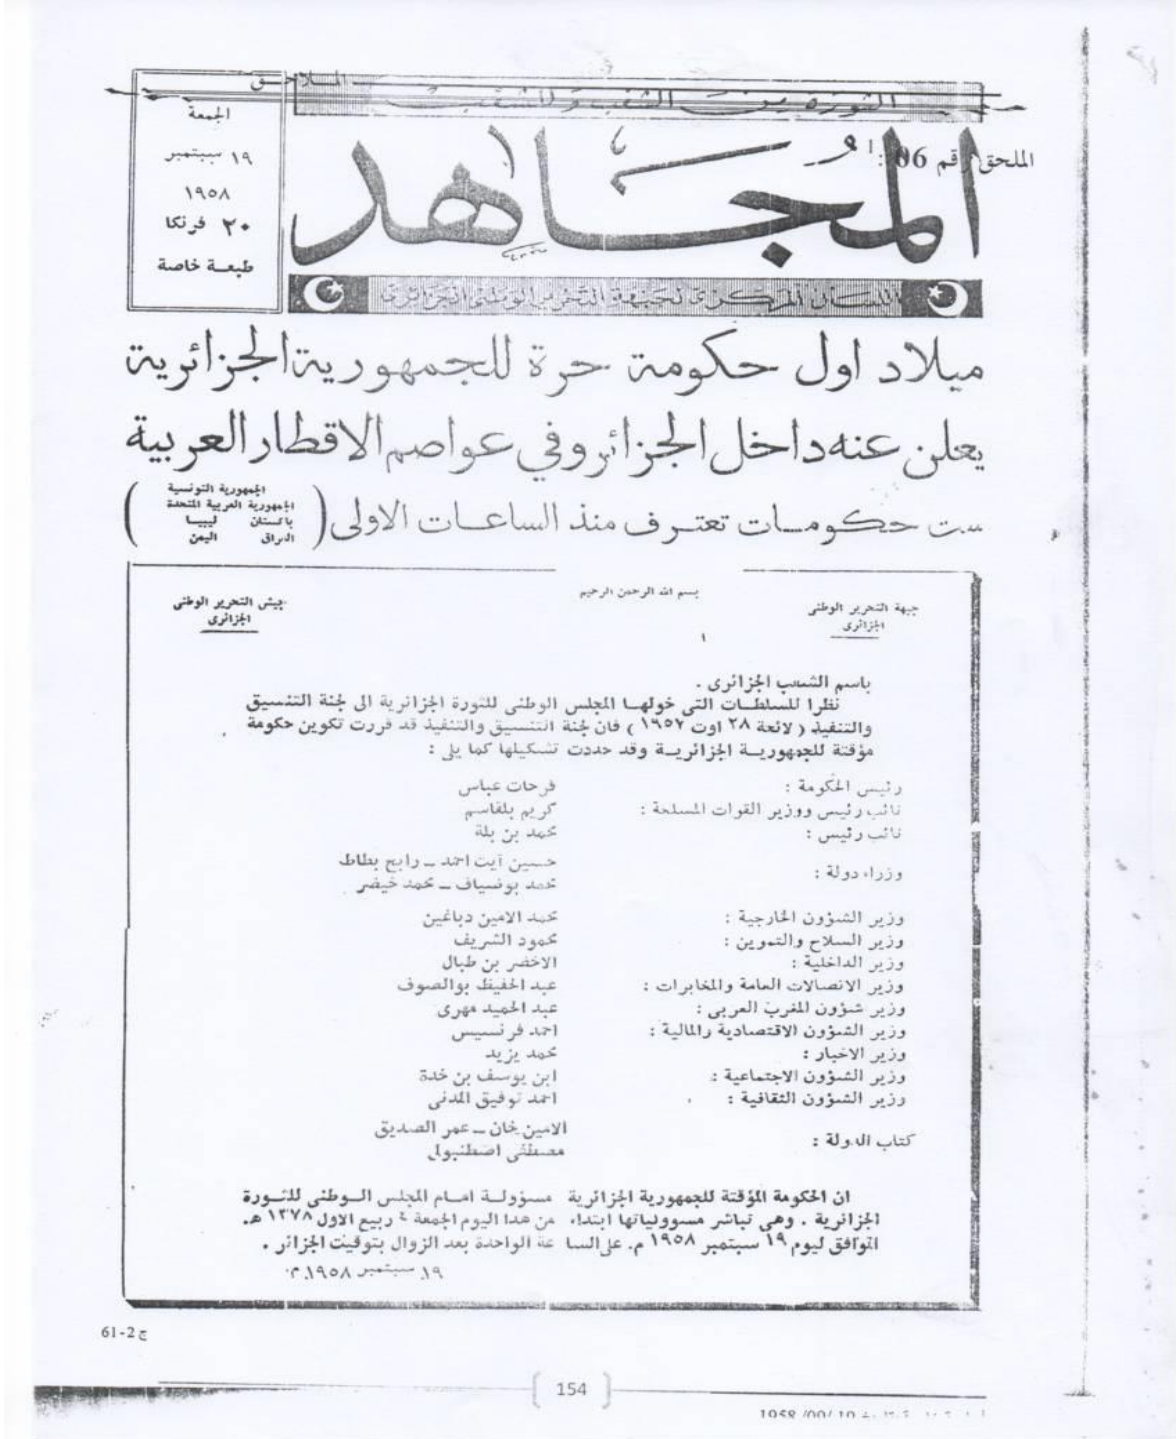 الملاحق
الثورة من الشعب وللشعب
الجمعة
١٩ سبتمبر
١٩٥٨
٢٠ فرنكا
طبعة خاصة
الملحق رقم 06:
المجاهد
اللسان المركزي لجبهة التحرير الوطني الجزائري
ميلاد اول حكومة حرة للجمهورية الجزائرية
يعلن عنه داخل الجزائر وفي عواصم الاقطار العربية
ست حكومات تعترف منذ الساعات الاولى (
الجمهورية التونسية
الجمهورية العربية المتحدة
باكستان ليبيا
العراق اليمن
)
جبهة التحرير الوطنى
الجزائرى
بسم الله الرحمن الرحيم
جيش التحرير الوطنى
الجزائرى
١
باسم الشعب الجزائرى .
نظرا للسلطات التى خولها المجلس الوطنى للثورة الجزائرية الى لجنة التنسيق
والتنفيذ ( لائحة ٢٨ اوت ١٩٥٧ ) فان لجنة التنسيق والتنفيذ قد قررت تكوين حكومة
مؤقتة للجمهورية الجزائرية وقد حددت تشكيلها كما يلى :
رئيس الحكومة : فرحات عباس
نائب رئيس ووزير القوات المسلحة : كريم بلقاسم
نائب رئيس : محمد بن بلة
وزراء دولة : حسين آيت احمد – رابح بطاط
محمد بوضياف – محمد خيضر
وزير الشؤون الخارجية : محمد الامين دباغين
وزير السلاح والتموين : محمود الشريف
وزير الداخلية : الاخضر بن طبال
وزير الاتصالات العامة والمخابرات : عبد الحفيظ بوالصوف
وزير شؤون المغرب العربى : عبد الحميد مهرى
وزير الشؤون الاقتصادية والمالية : احمد فرنسيس
وزير الاخبار : محمد يزيد
وزير الشؤون الاجتماعية : ابن يوسف بن خدة
وزير الشؤون الثقافية : احمد توفيق المدنى
كتاب الدولة : الامين خان – عمر الصديق
مصطفى اصطنبول
ان الحكومة المؤقتة للجمهورية الجزائرية مسؤولة امام المجلس الوطنى للثورة
الجزائرية . وهى تباشر مسوولياتها ابتداء من هذا اليوم الجمعة ٤ ربيع الاول ١٣٧٨ هـ.
الموافق ليوم ١٩ سبتمبر ١٩٥٨ م. على الساعة الواحدة بعد الزوال بتوقيت الجزائر .
١٩ سبتمبر ١٩٥٨ م.
ج 2-61
154